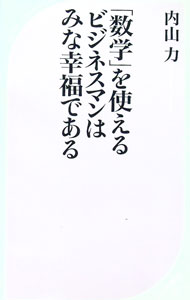 「数学」を使える
ビジネスマンは
みな幸福である
内山 力